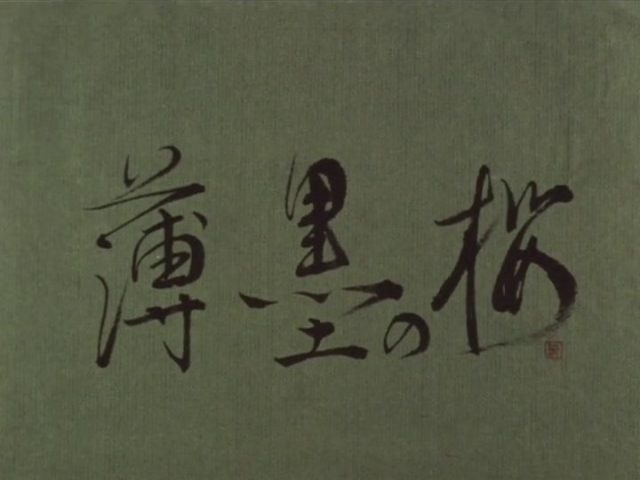 薄墨の桜